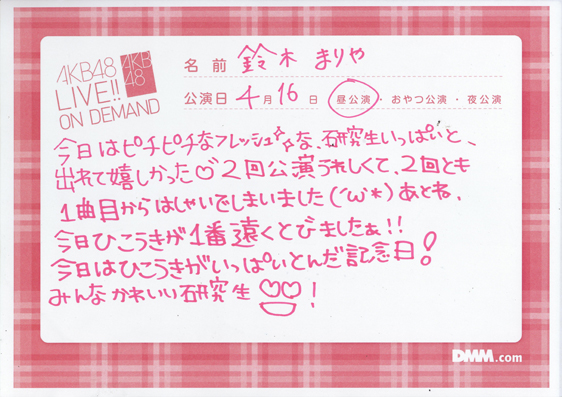 AKB48
LIVE!!
ON DEMAND
AKB
48
名前 鈴木 まりや
公演日 4月16日 昼公演・おやつ公演・夜公演
今日はピチピチなフレッシュな、研究生いっぱいと、
出れて嬉しかった♡2回公演うれしくて、2回とも
1曲目からはしゃいでしまいました(´ω*)あとね、
今日ひこうきが1番遠くとびましたぁ!!
今日はひこうきがいっぱいとんだ記念日!
みんなかわいい研究生!
DMM.com